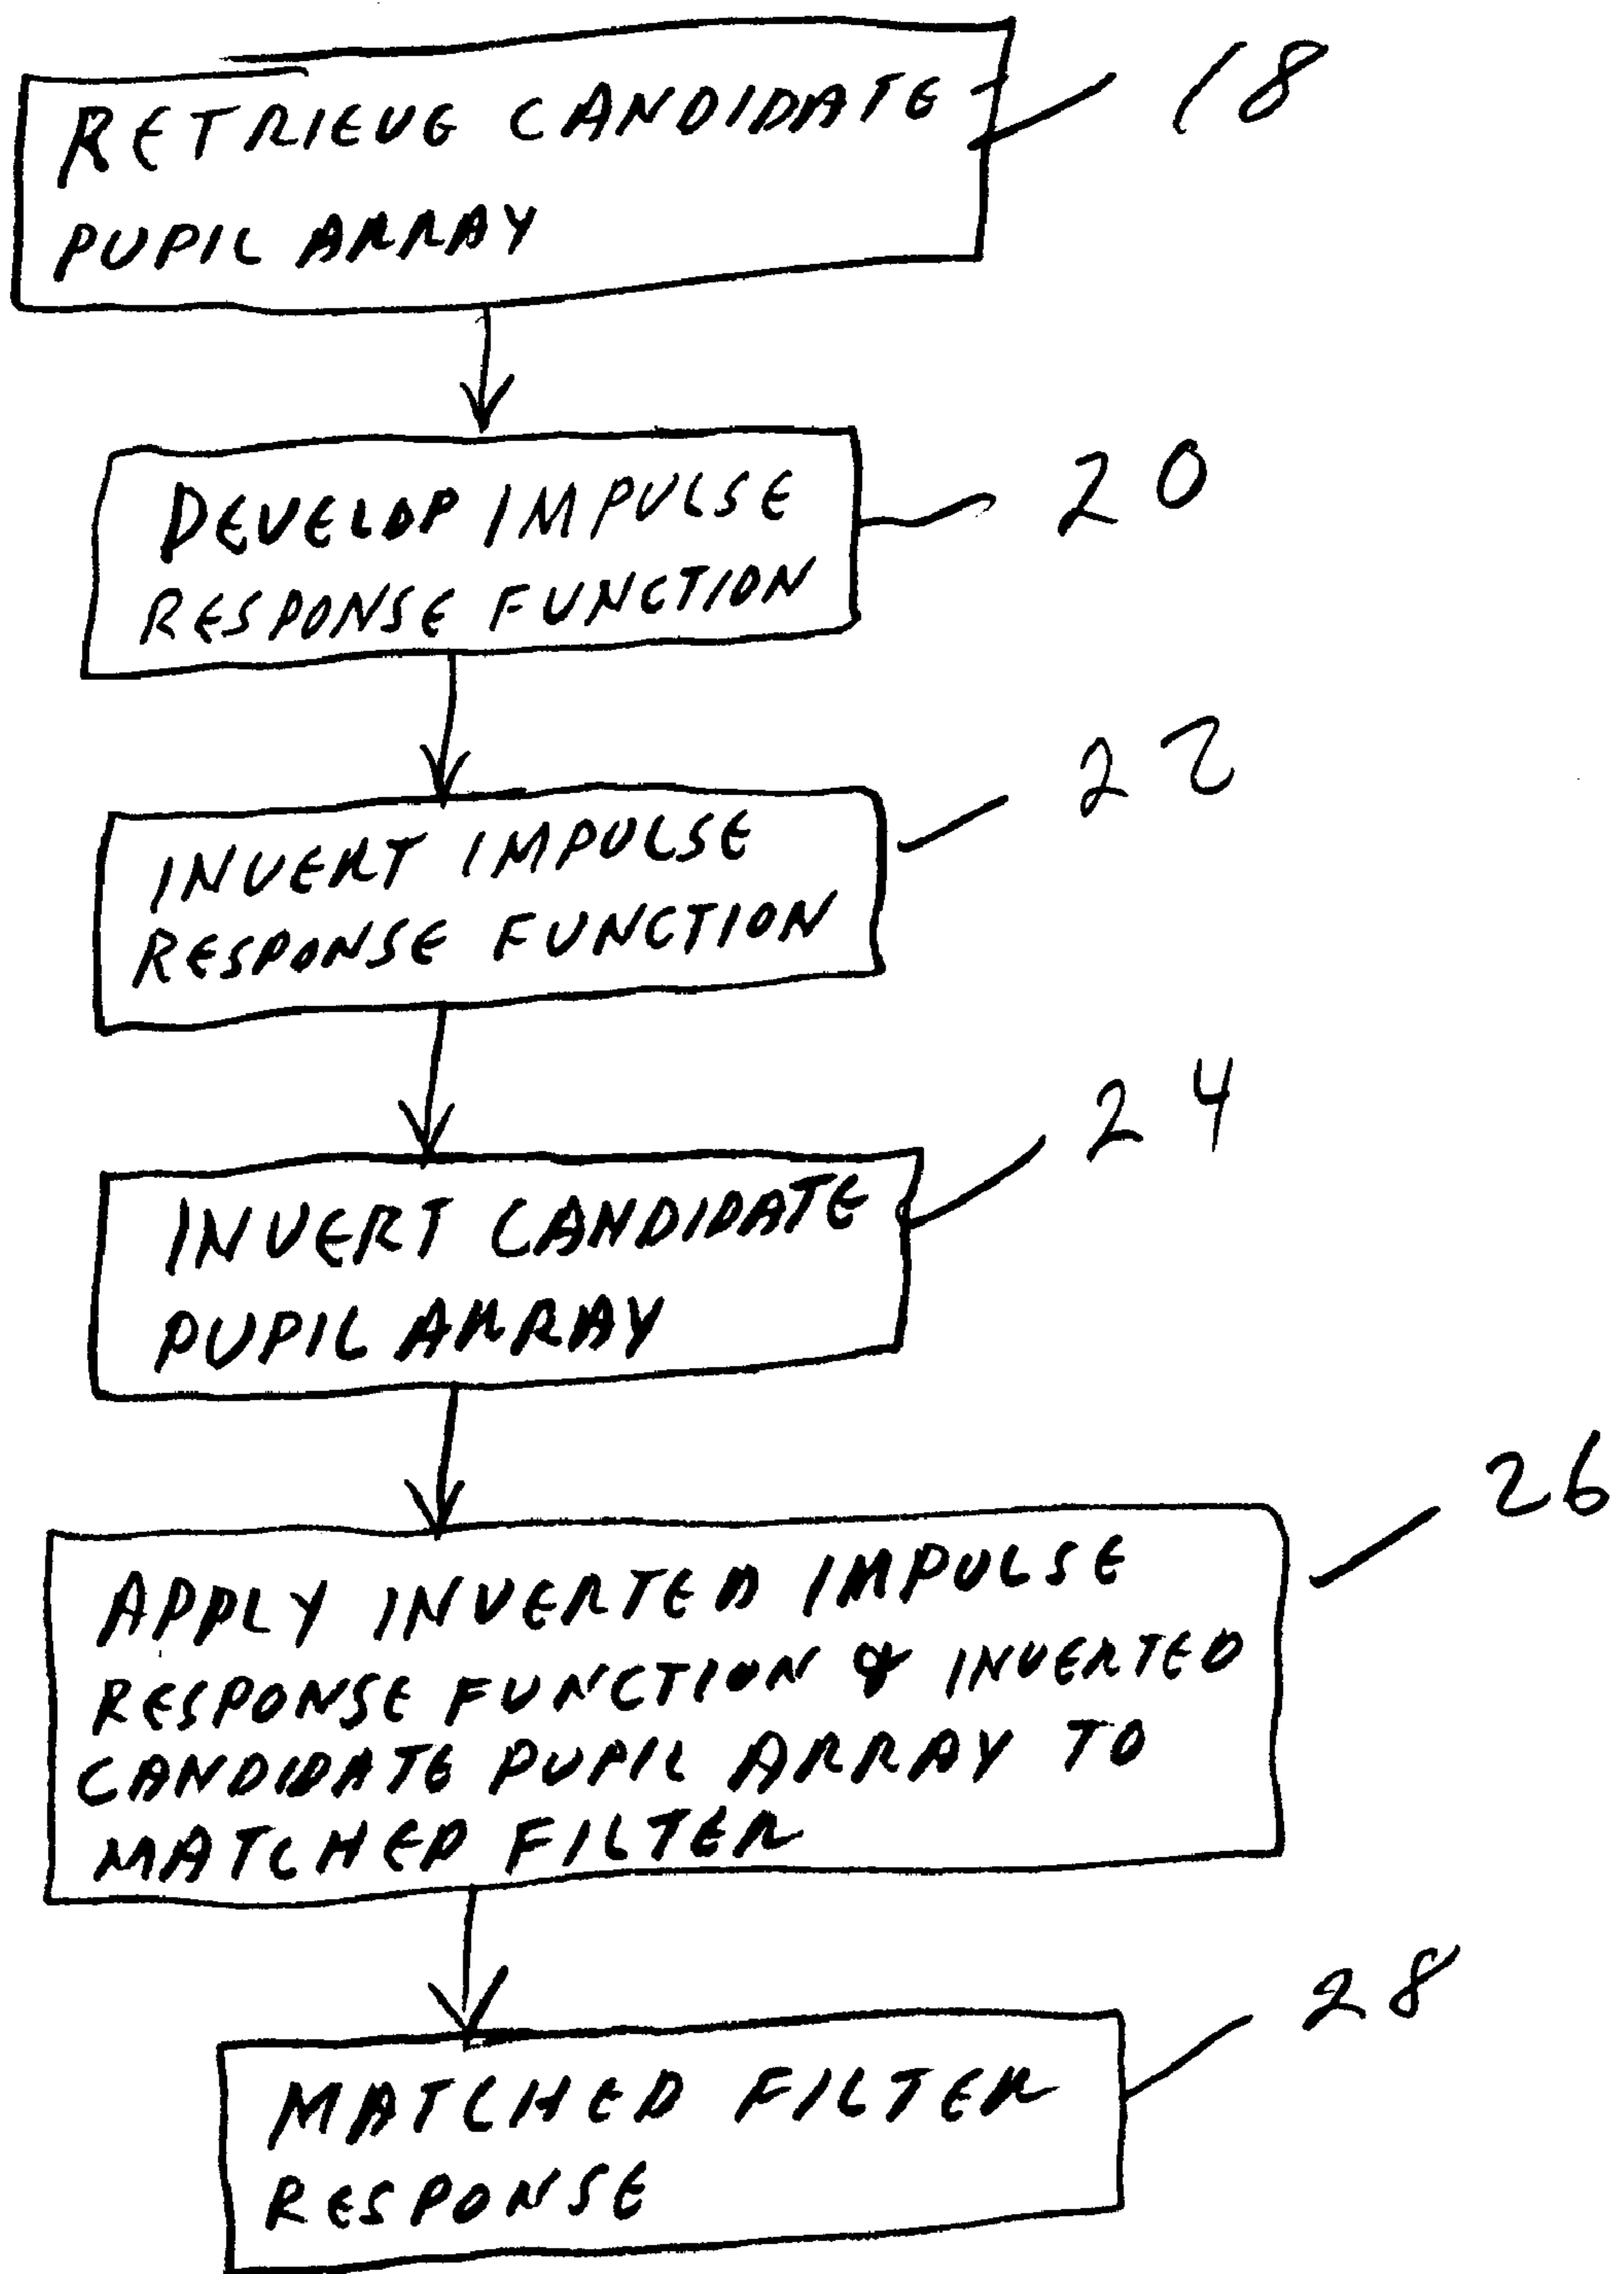 RETRIEVE CANDIDATE
18
PUPIL ARRAY
DEVELOP IMPULSE
20
RESPONSE FUNCTION
INVERT IMPULSE
22
RESPONSE FUNCTION
INVERT CANDIDATE
24
PUPIL ARRAY
APPLY INVERTED IMPULSE
26
RESPONSE FUNCTION & INVERTED
CANDIDATE PUPIL ARRAY TO
MATCHED FILTER
MATCHED FILTER
28
RESPONSE